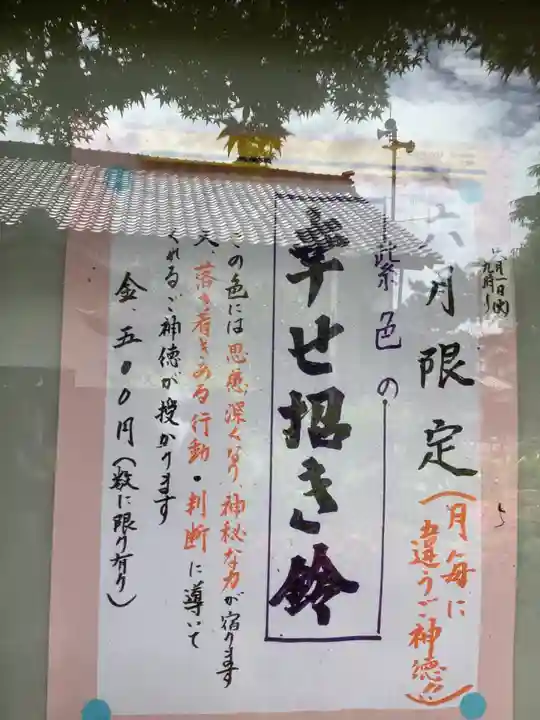 六月限定（月毎に
違うご神徳!!）
紫色の
幸せ招き鈴
この色には思慮深くなり、神秘な力が宿ります
又、落ち着きある行動・判断に導いて
くれるご神徳が授かります
金、五〇〇円（数に限り有り）